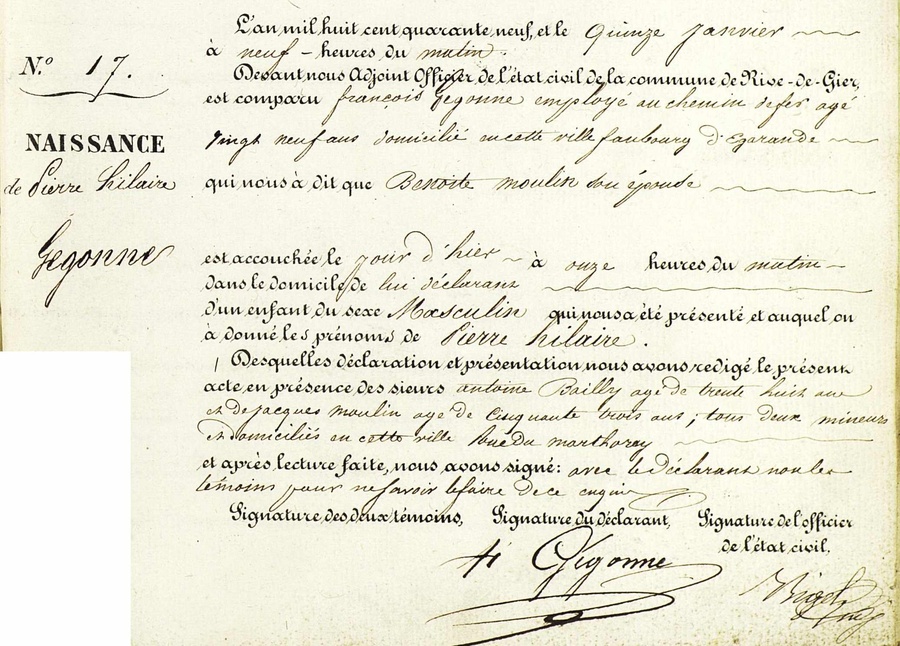 L'an mil huit cent quarante neuf, et le quinze janvier
à neuf heures du matin.
N.º 17.
Devant nous Adjoint Officier de l'état civil de la commune de Rive-de-Gier,
est comparu françois Gegonne employé au chemin defer agé
NAISSANCE
Vingt neuf ans domicilié en cette ville faubourg d'Egarande
de Pierre hilaire
qui nous à dit que Benoite moulin son épouse
Gegonne
est accouchée, le jour d'hier à onze heures du matin
dans le domicile de lui déclarant
d'un enfant du sexe Masculin qui nous a été présenté et auquel on
à donné les prénoms de Pierre hilaire.
Desquelles déclaration et présentation nous avons redigé le présent
acte, en présence des sieurs antoine Bailly age de trente huit ans
et de jacques moulin age de cinquante trois ans; tous deux mineurs
et domiciliés en cette ville
et après lecture faite, nous avons signé: avec le déclarant non les
témoins pour ne savoir le faire de ce
Signature des deux témoins, Signature du déclarant, Signature de l'officier
de l'état civil,
fs Gegonne